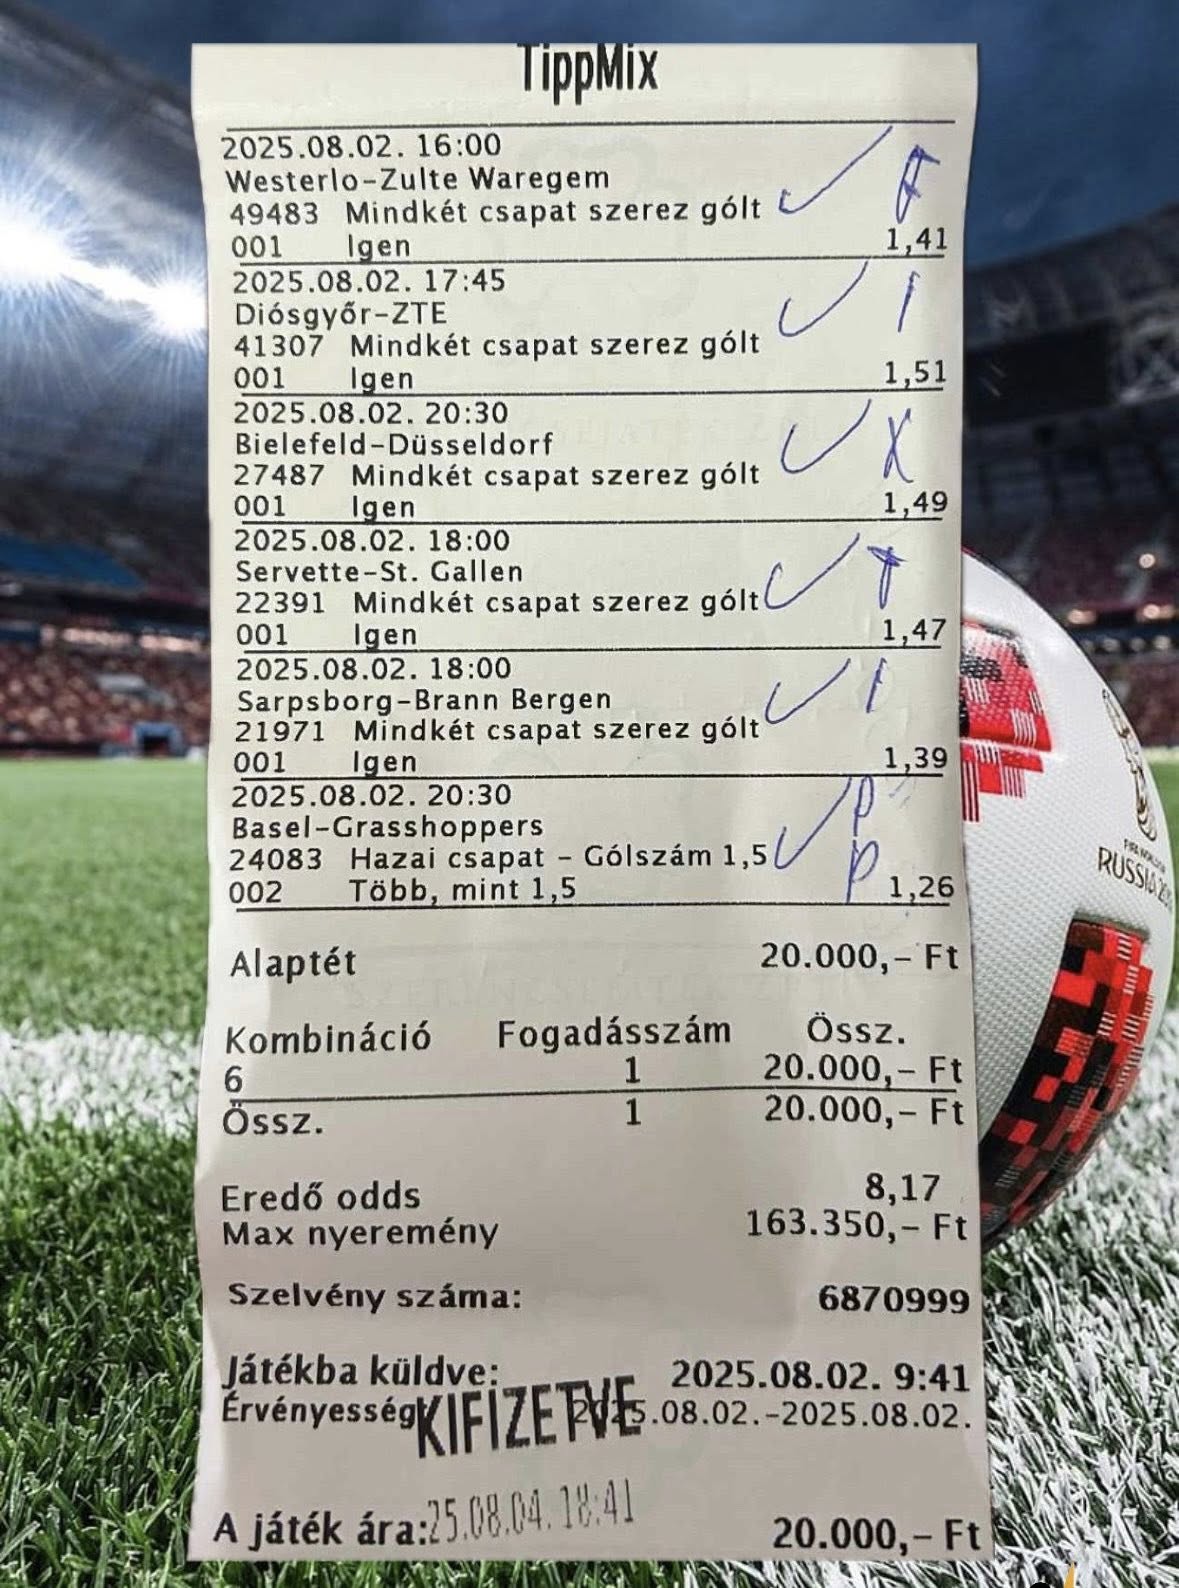 TippMix
2025.08.02. 16:00
Westerlo-Zulte Waregem
49483 Mindkét csapat szerez gólt
001 Igen 1,41
2025.08.02. 17:45
Diósgyőr-ZTE
41307 Mindkét csapat szerez gólt
001 Igen 1,51
2025.08.02. 20:30
Bielefeld-Düsseldorf
27487 Mindkét csapat szerez gólt X
001 Igen 1,49
2025.08.02. 18:00
Servette-St. Gallen
22391 Mindkét csapat szerez gólt
001 Igen 1,47
2025.08.02. 18:00
Sarpsborg-Brann Bergen
21971 Mindkét csapat szerez gólt
001 Igen 1,39
2025.08.02. 20:30 P
Basel-Grasshoppers
24083 Hazai csapat - Gólszám 1,5 P
002 Több, mint 1,5 1,26
Alaptét 20.000,- Ft
Kombináció Fogadásszám Össz.
6 1 20.000,- Ft
Össz. 1 20.000,- Ft
Eredő odds 8,17
Max nyeremény 163.350,- Ft
Szelvény száma: 6870999
Játékba küldve: 2025.08.02. 9:41
Érvényesség 2025.08.02.-2025.08.02.
KIFIZETVE
25.08.04. 18:41
A játék ára: 20.000,- Ft
RUSSIA